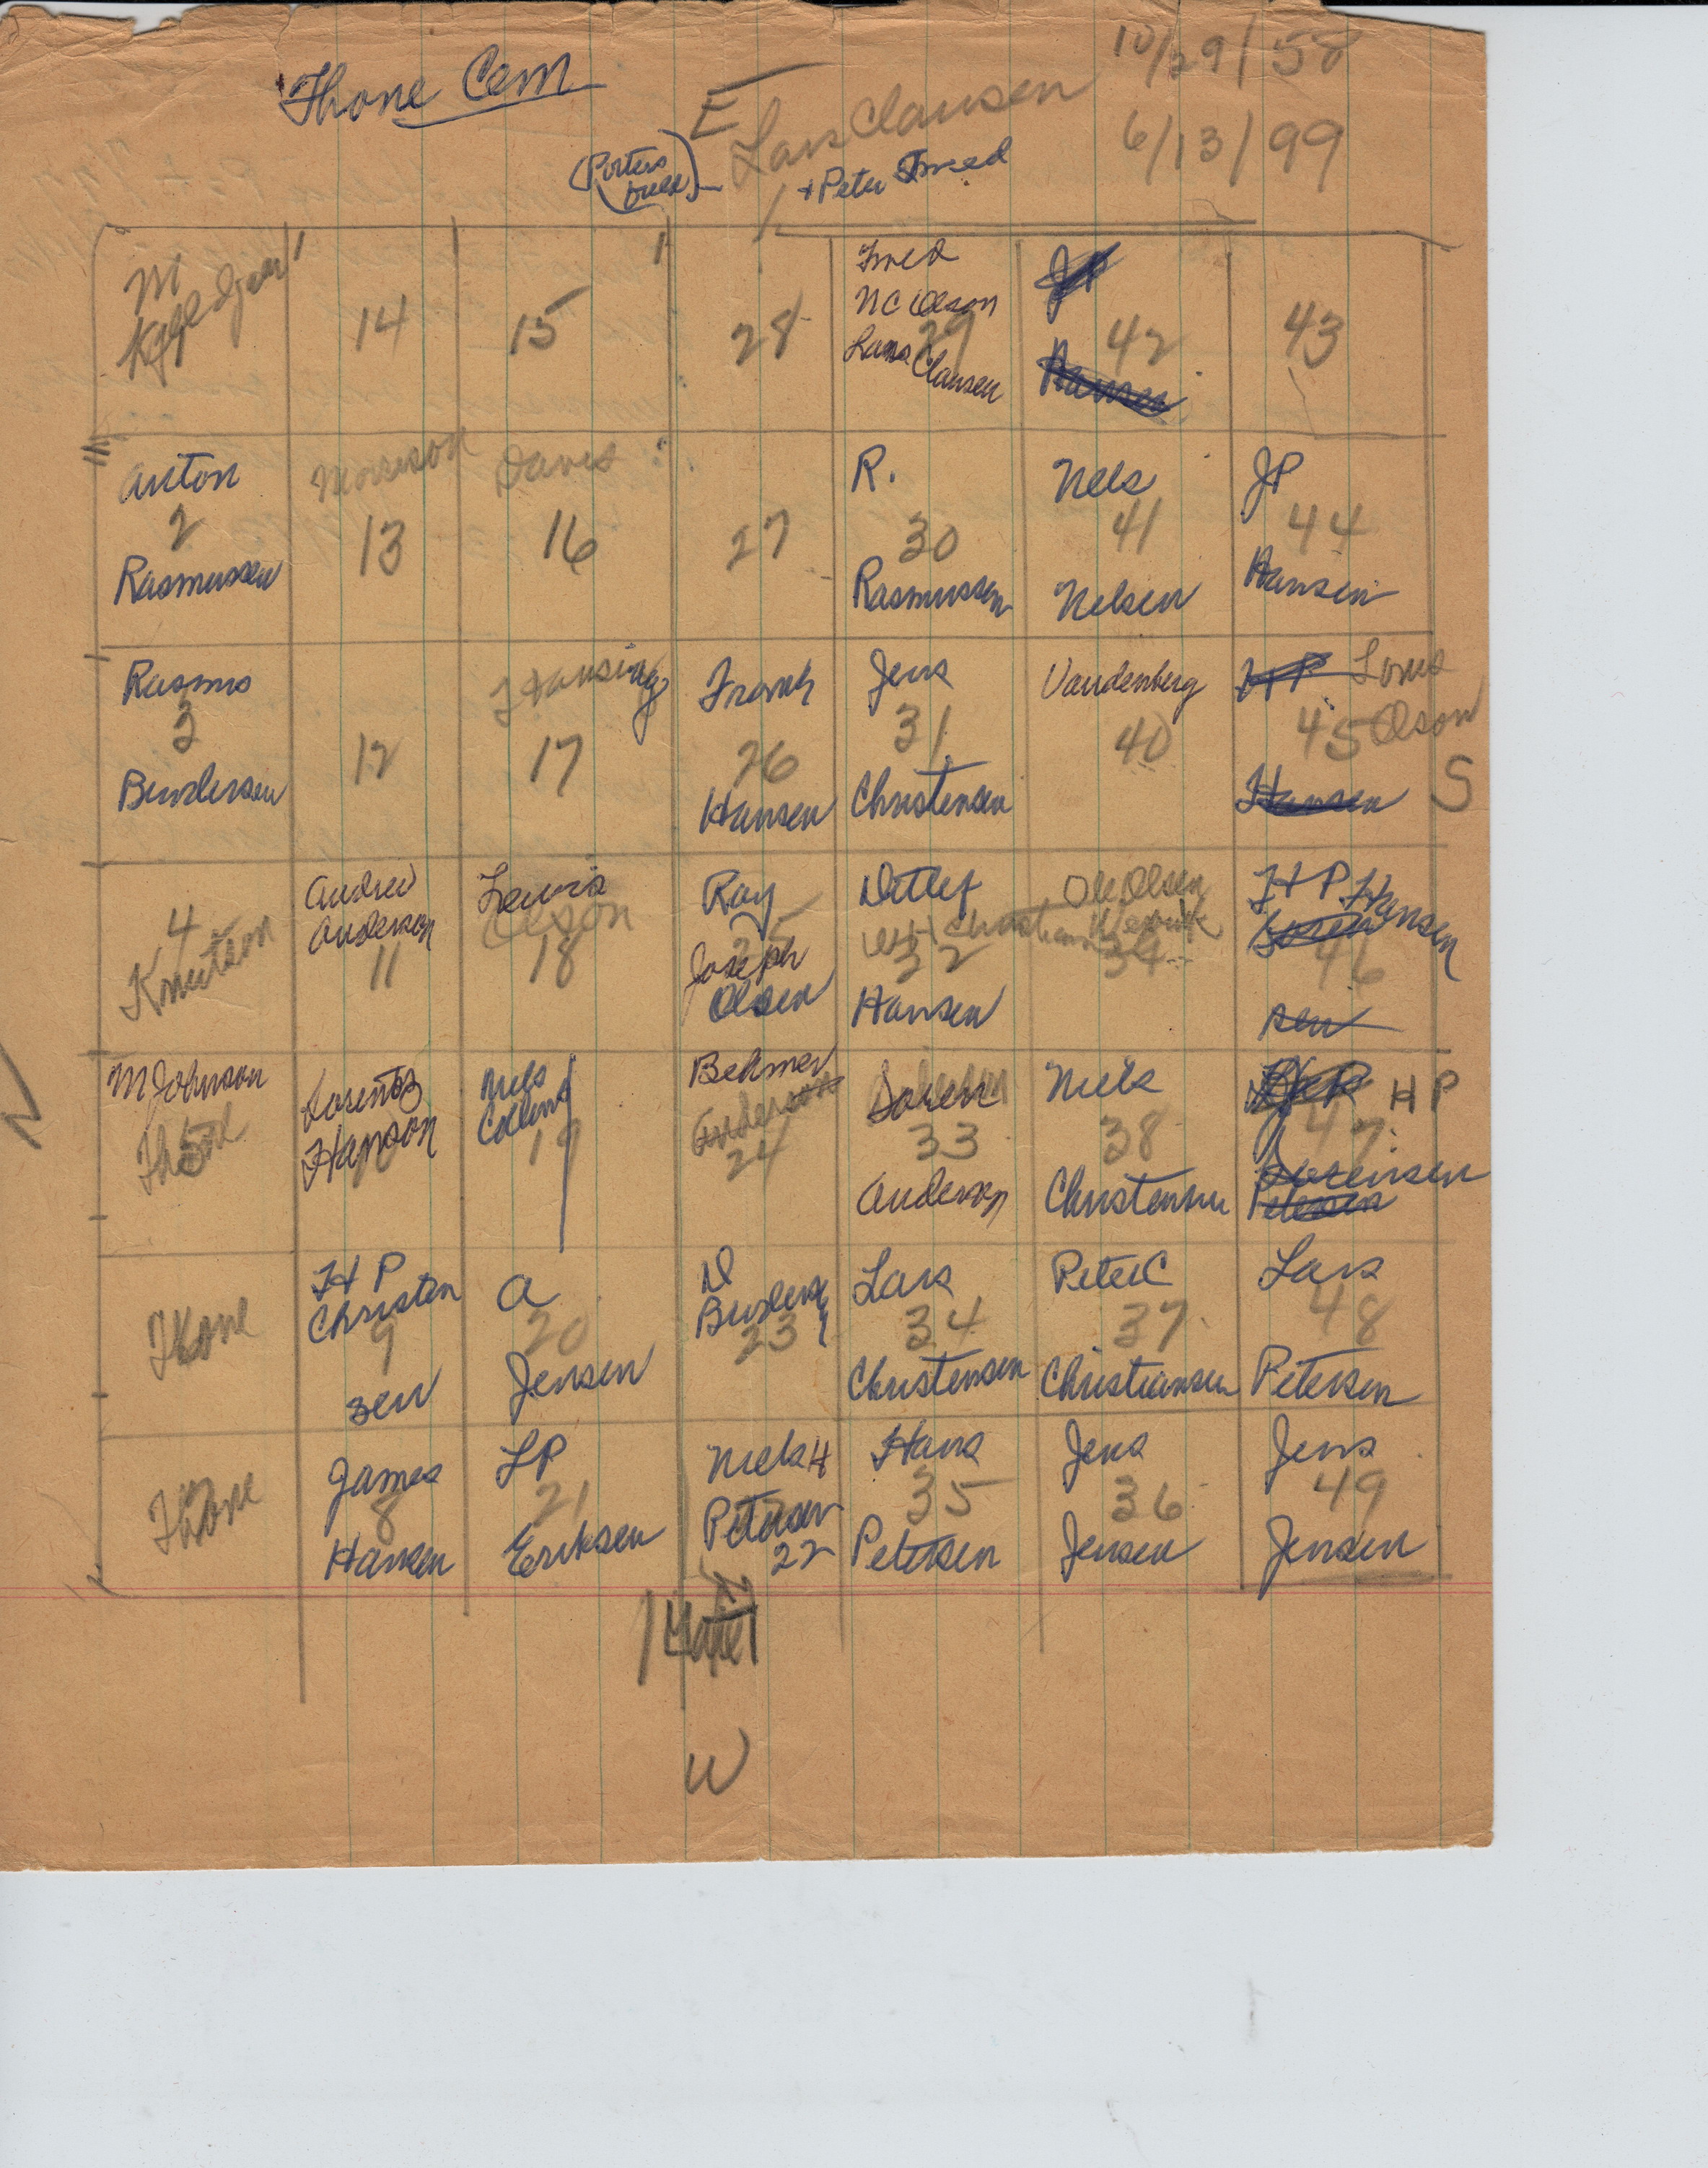 10/29/58
Thone Cem
E
Lars Clausen
6/13/99
(Porters
+ Peter Smed
1
M
14
15
28
Smed
NC Olson
29
Lars Clausen
JP
42
Hansen
43
Anton
2
Rasmussen
Morrison
13
Davis
16
27
R.
30
Rasmussen
Nels
41
Nelsen
JP
44
Hansen
Rasmus
3
Bendersen
12
17
Frank
26
Hansen
Jens
31
Christensen
Vandenberg
40
HP Louis
45 Olson
Hansen
S
4
Knutson
Andrew
Anderson
11
Lewis
Olson
18
Ray
25
Joseph
Olsen
Ditlef
Christian
32
Hansen
Ole Olsen
39
H P Hansen
46
sen
N
M Johnson
5
Thone
Hanson
10
Niels
Collins
19
Behmer
Anderson
24
Soren
33
Anderson
Niels
38
Christensen
H P
47
Sorensen
Petersen
Thone
H P
Christen
9
sen
A
20
Jensen
D
23
Lars
34
Christensen
Peter C
37
Christiansen
Lars
48
Petersen
Thone
7
James
8
Hansen
LP
21
Eriksen
Niels H
Petersen
22
Hans
35
Petersen
Jens
36
Jensen
Jens
49
Jensen
W